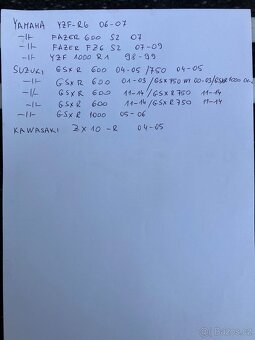 YAMAHA YZF-R6 06-07
-11- FAZER 600 S2 07
-11- FAZER FZ6 S2 07-09
-11- YZF 1000 R1 98-99
SUZUKI GSX R 600 04-05 / 750 04-05
-11- GSX R 600 01-03 / GSX 750 00-03 / GSXR 1000
-11- GSX R 600 11-14 / GSX R 750 11-14
-11- GSX R 600 11-14 / GSX R 750 11-14
-11- GSX R 1000 05-06
KAWASAKI ZX 10-R 04-05